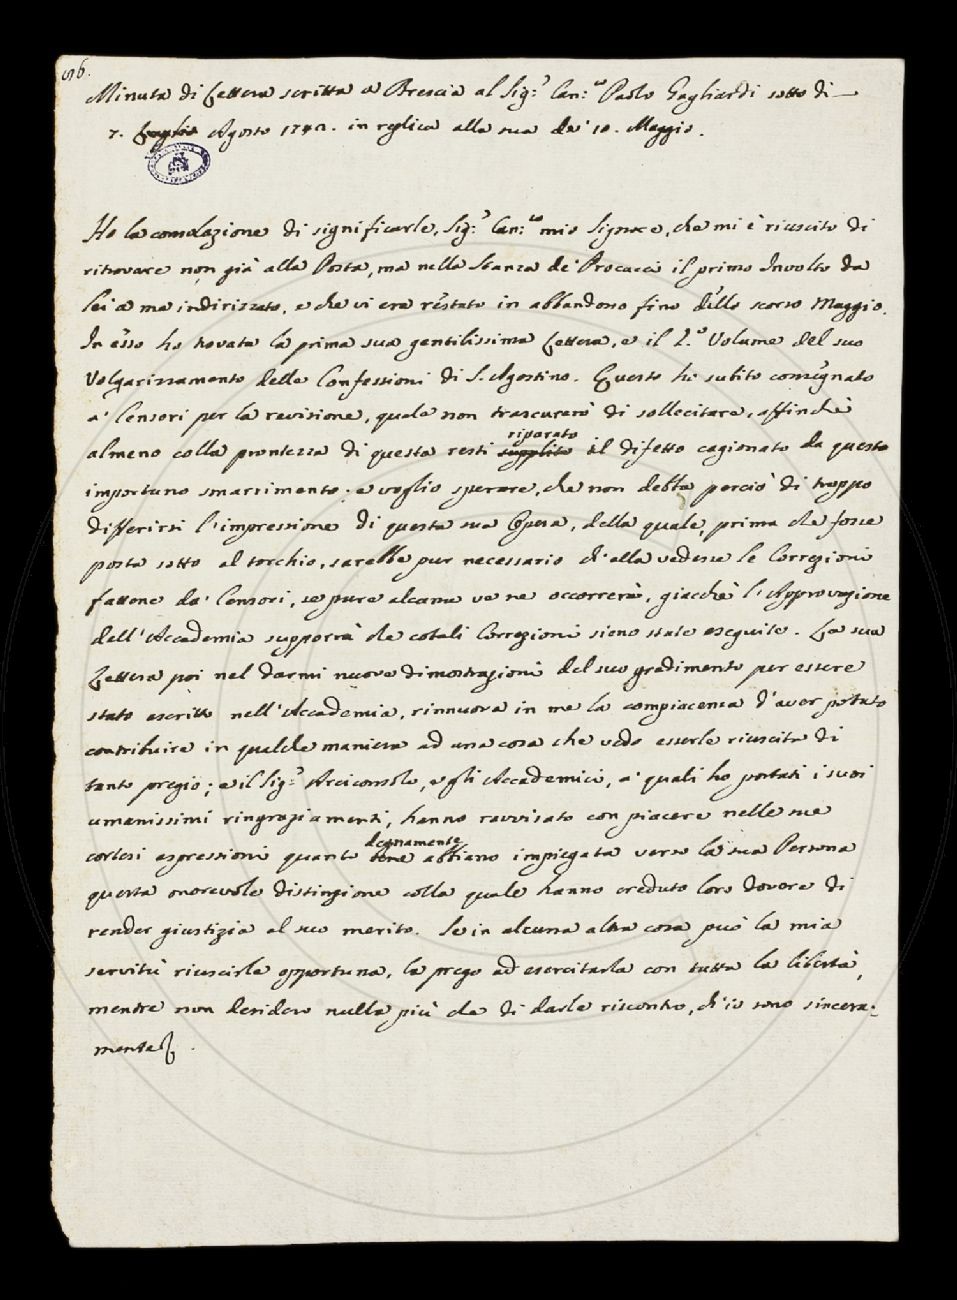 96.
Minuta di Lettera scritta a Brescia al Sig.r Can.co Paolo Gagliardi sotto di
7. Luglio Agosto 1740. in replica alla sua de' 18. Maggio.
Ho la consolazione di significarle, Sig.r Can.co mio Signore, che mi è riuscito di
ritrovare non già alla Posta, ma nella Stanza de' Procacci il primo Involto da
lei a me indirizzato, e che vi era restato in abbandono fino dello scorso Maggio.
In esso ho trovata la prima sua gentilissima Lettera, e il 2.o Volume del suo
Volgarizzamento delle Confessioni di S. Agostino. Questo ho subito consegnato
a' Censori per la revisione, quale non trascurerò di sollecitare, affinchè
almeno colla prontezza di questa resti supplito riparato il difetto cagionato da questo
importuno smarrimento; e voglio sperare, che non debba perciò di troppo
differirsi l'impressione di questa sua Opera, della quale, prima che fosse
posta sotto al torchio, sarebbe pur necessario ch'ella vedesse le Correzioni
fattone da' Censori, se pure alcuna ve ne occorrerà, giacchè l'Approvazione
dell'Accademia supporrà che cotali Correzioni sieno state eseguite. La sua
Lettera poi nel darmi nuove dimostrazioni del suo gradimento per essere
stato ascritto nell'Accademia, rinnuova in me la compiacenza d'aver potuto
contribuire in qualche maniera ad una cosa che vedo esserle riuscita di
tanto pregio; e il Sig.r Arciconsolo, e gli Accademici, a' quali ho portati i suoi
umanissimi ringraziamenti, hanno ravvisato con piacere nelle sue
cortesi espressioni quanto bene degnamente abbiano impiegata verso la sua Persona
questa onorevole distinzione colla quale hanno creduto loro dovere di
render giustizia al suo merito. Se in alcuna altra cosa può la mia
servitù riuscirle opportuna, la prego ad esercitarla con tutta la libertà,
mentre non desidero nulla più che di darle riscontro, ch'io sono sincera-
mente